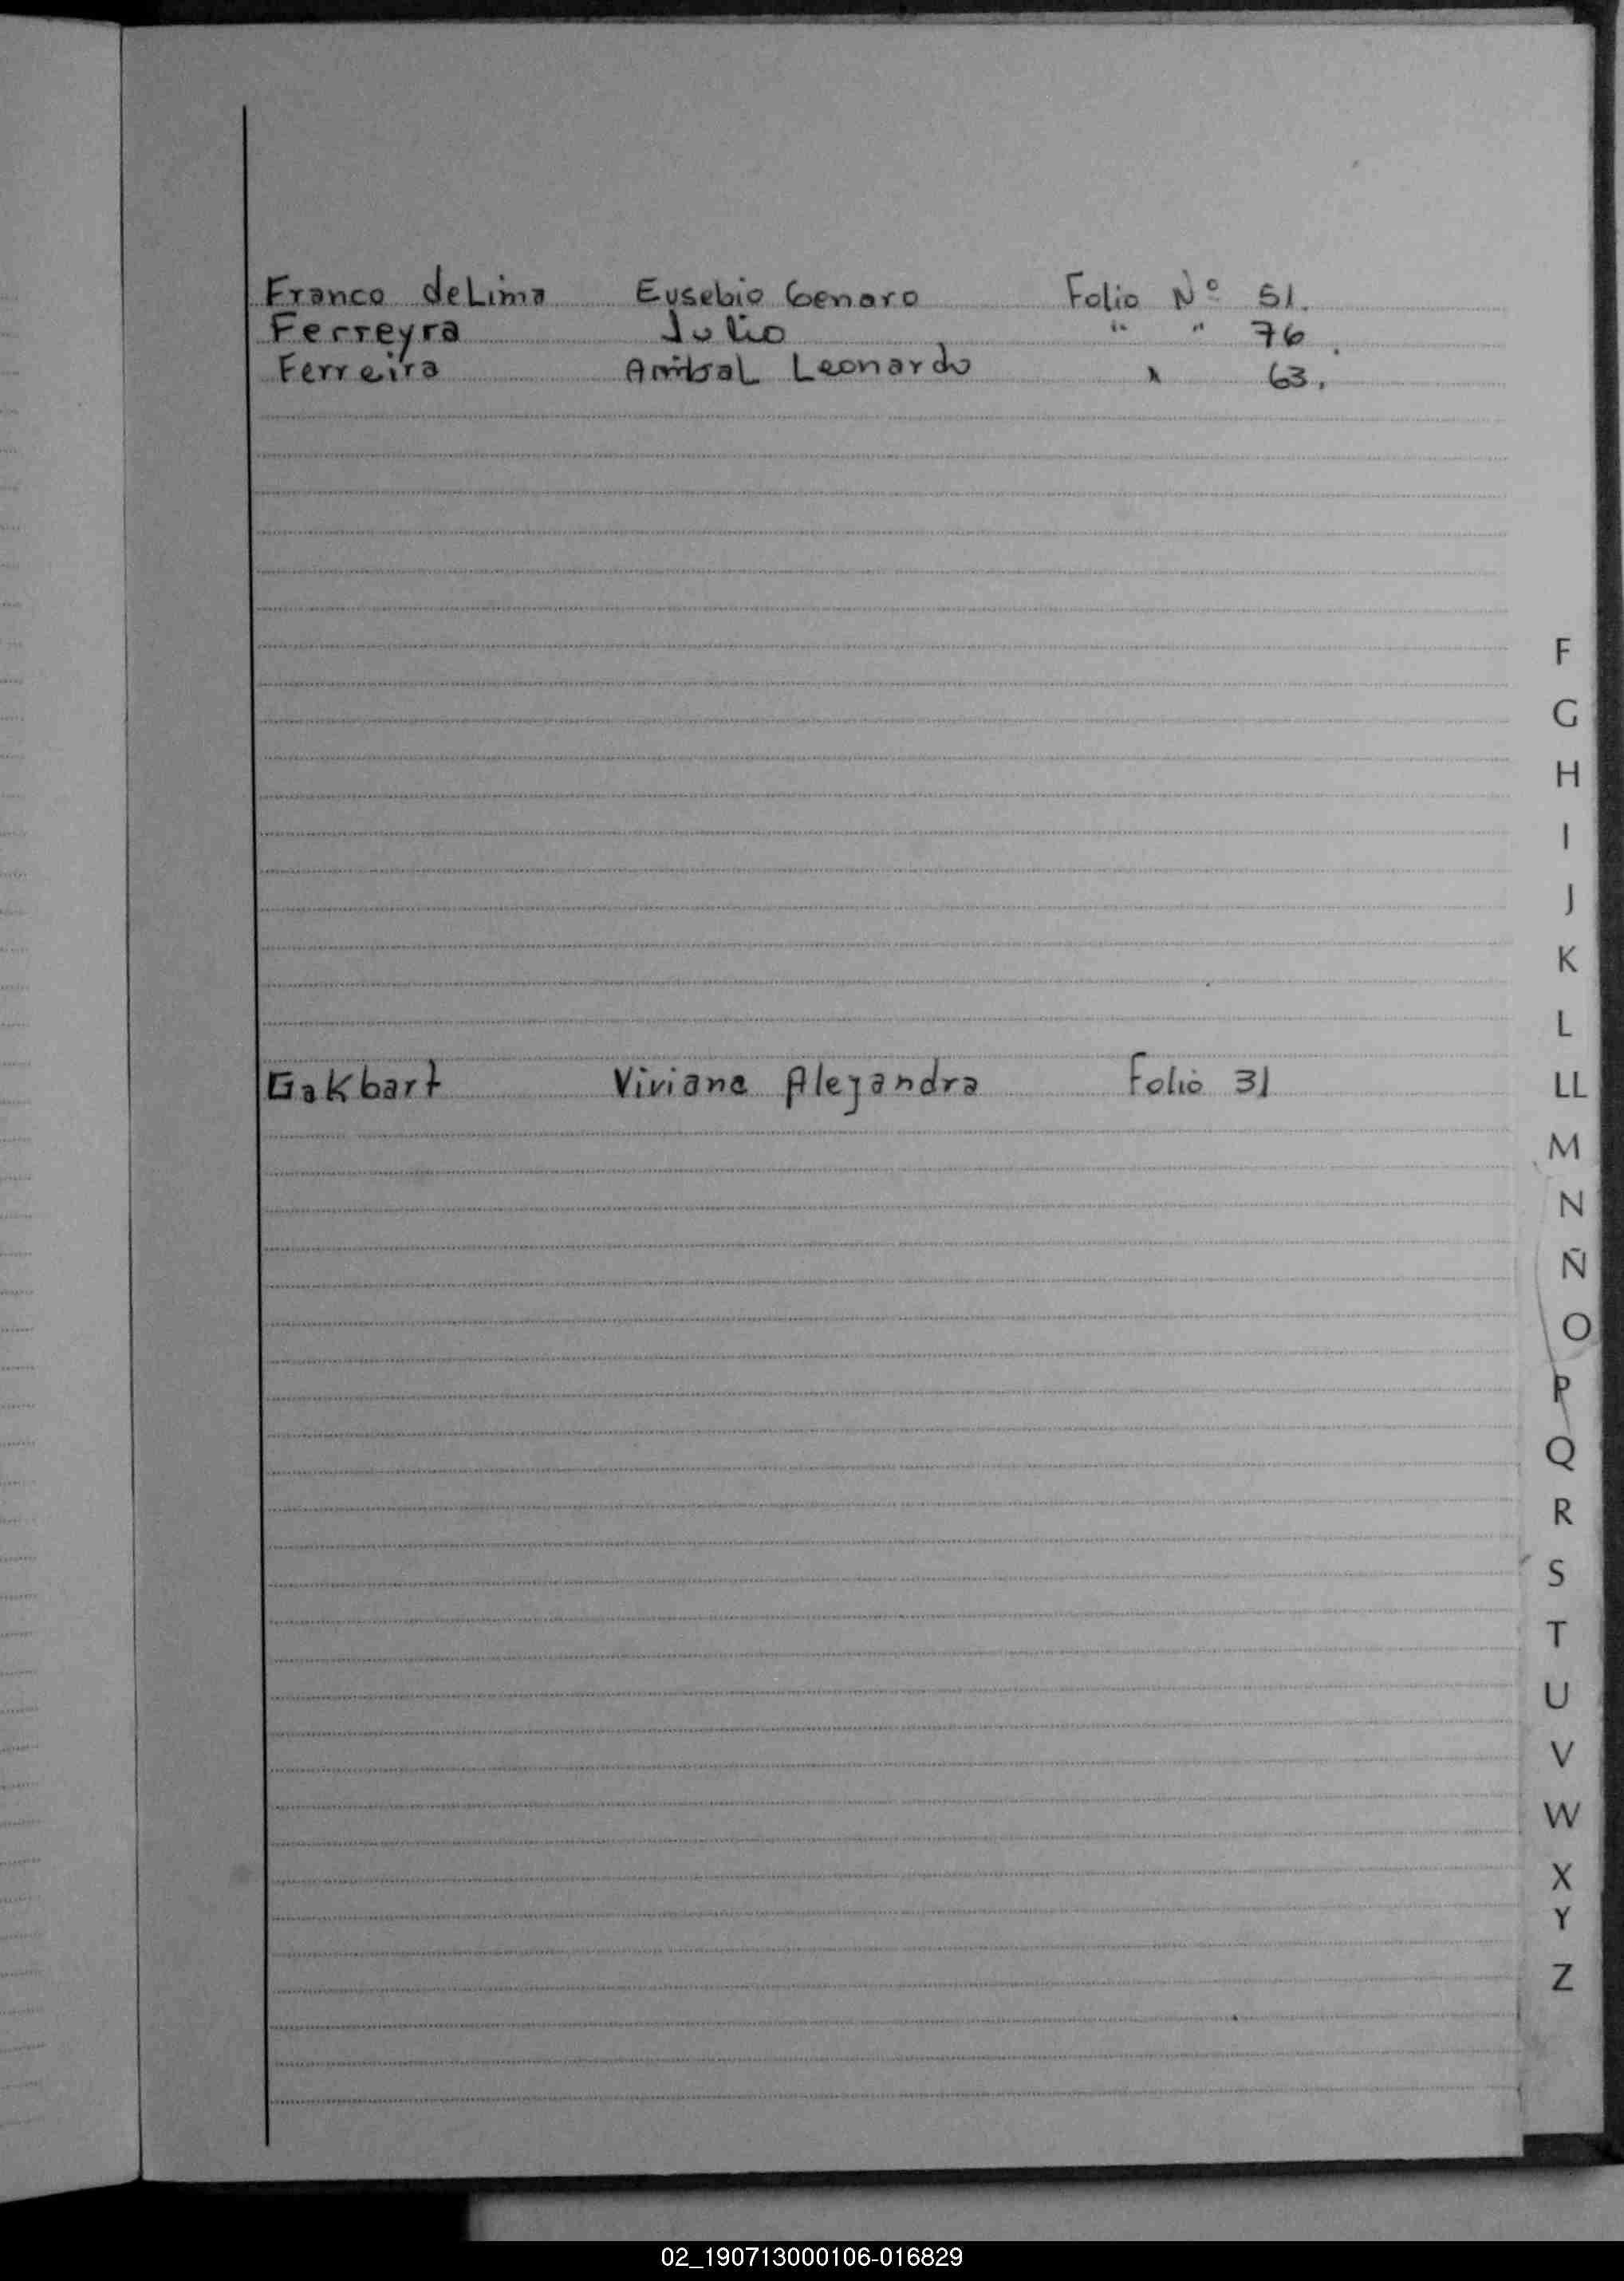 Franco deLima Eusebio Genaro Folio Nº 51.
Ferreyra Julio " " 76.
Ferreira Anibal Leonardo " 63.
Gakbart Viviana Alejandra Folio 31
F
G
H
I
J
K
L
LL
M
N
Ñ
O
P
Q
R
S
T
U
V
W
X
Y
Z
02_190713000106-016829